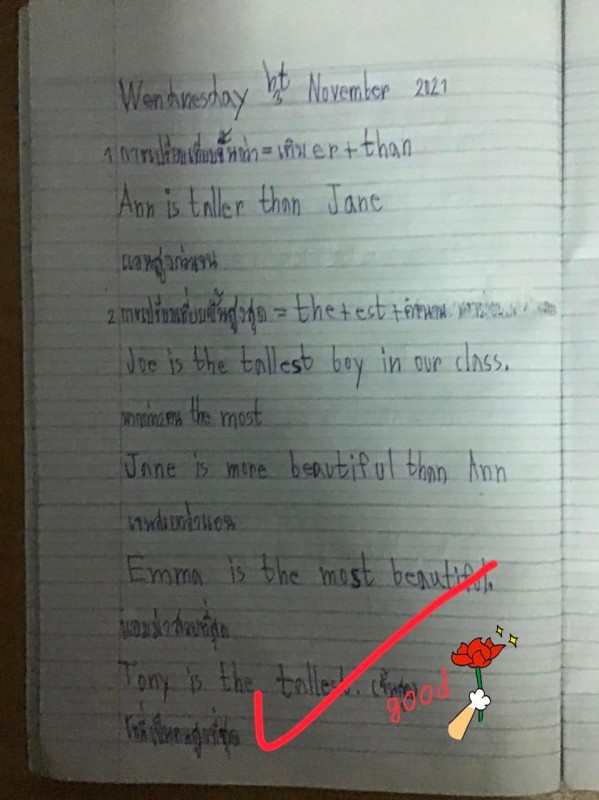 Wendnesday 3 November 2021
1 การเปรียบเทียบขั้นกว่า = เติม er + than
Ann is taller than Jane
แอนสูงกว่าเจน
2 การเปรียบเทียบขั้นสูงสุด = the + est + คำนาม
Joe is the tallest boy in our class.
the most
Jane is more beautiful than Ann
เจนสวยกว่าแอน
Emma is the most beautiful.
แอมม่าสวยที่สุด
Tony is the tallest.
โทนี่เป็นคนสูงที่สุด
good